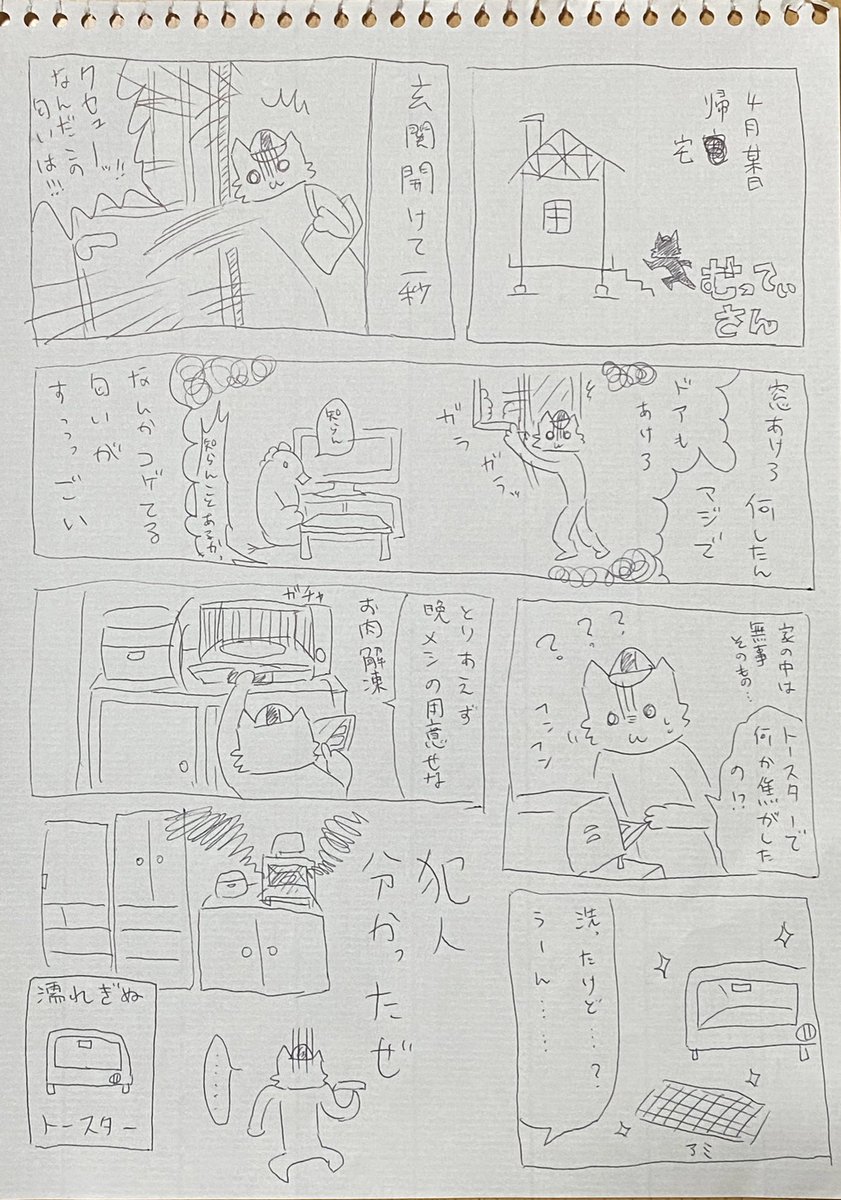 4月某日
帰宅
むってぃ
さん
玄関開けて一秒
クセェーッ!!
なんだこの
匂いは!!!
窓あけろ 何したん
ドアも マジで
あけろ
ガラ
ガラッ
知らん
知らんことあるか
なんかコゲてる
匂いが
すっっっごい
家の中は
無事
そのもの…
トースターで
何か焦がした
の!?
???
フンフン
とりあえず
晩メシの用意せな
お肉解凍
ガチャ
洗ったけど…?
うーん……
アミ
犯人
分かったぜ
……
濡れぎぬ
トースター